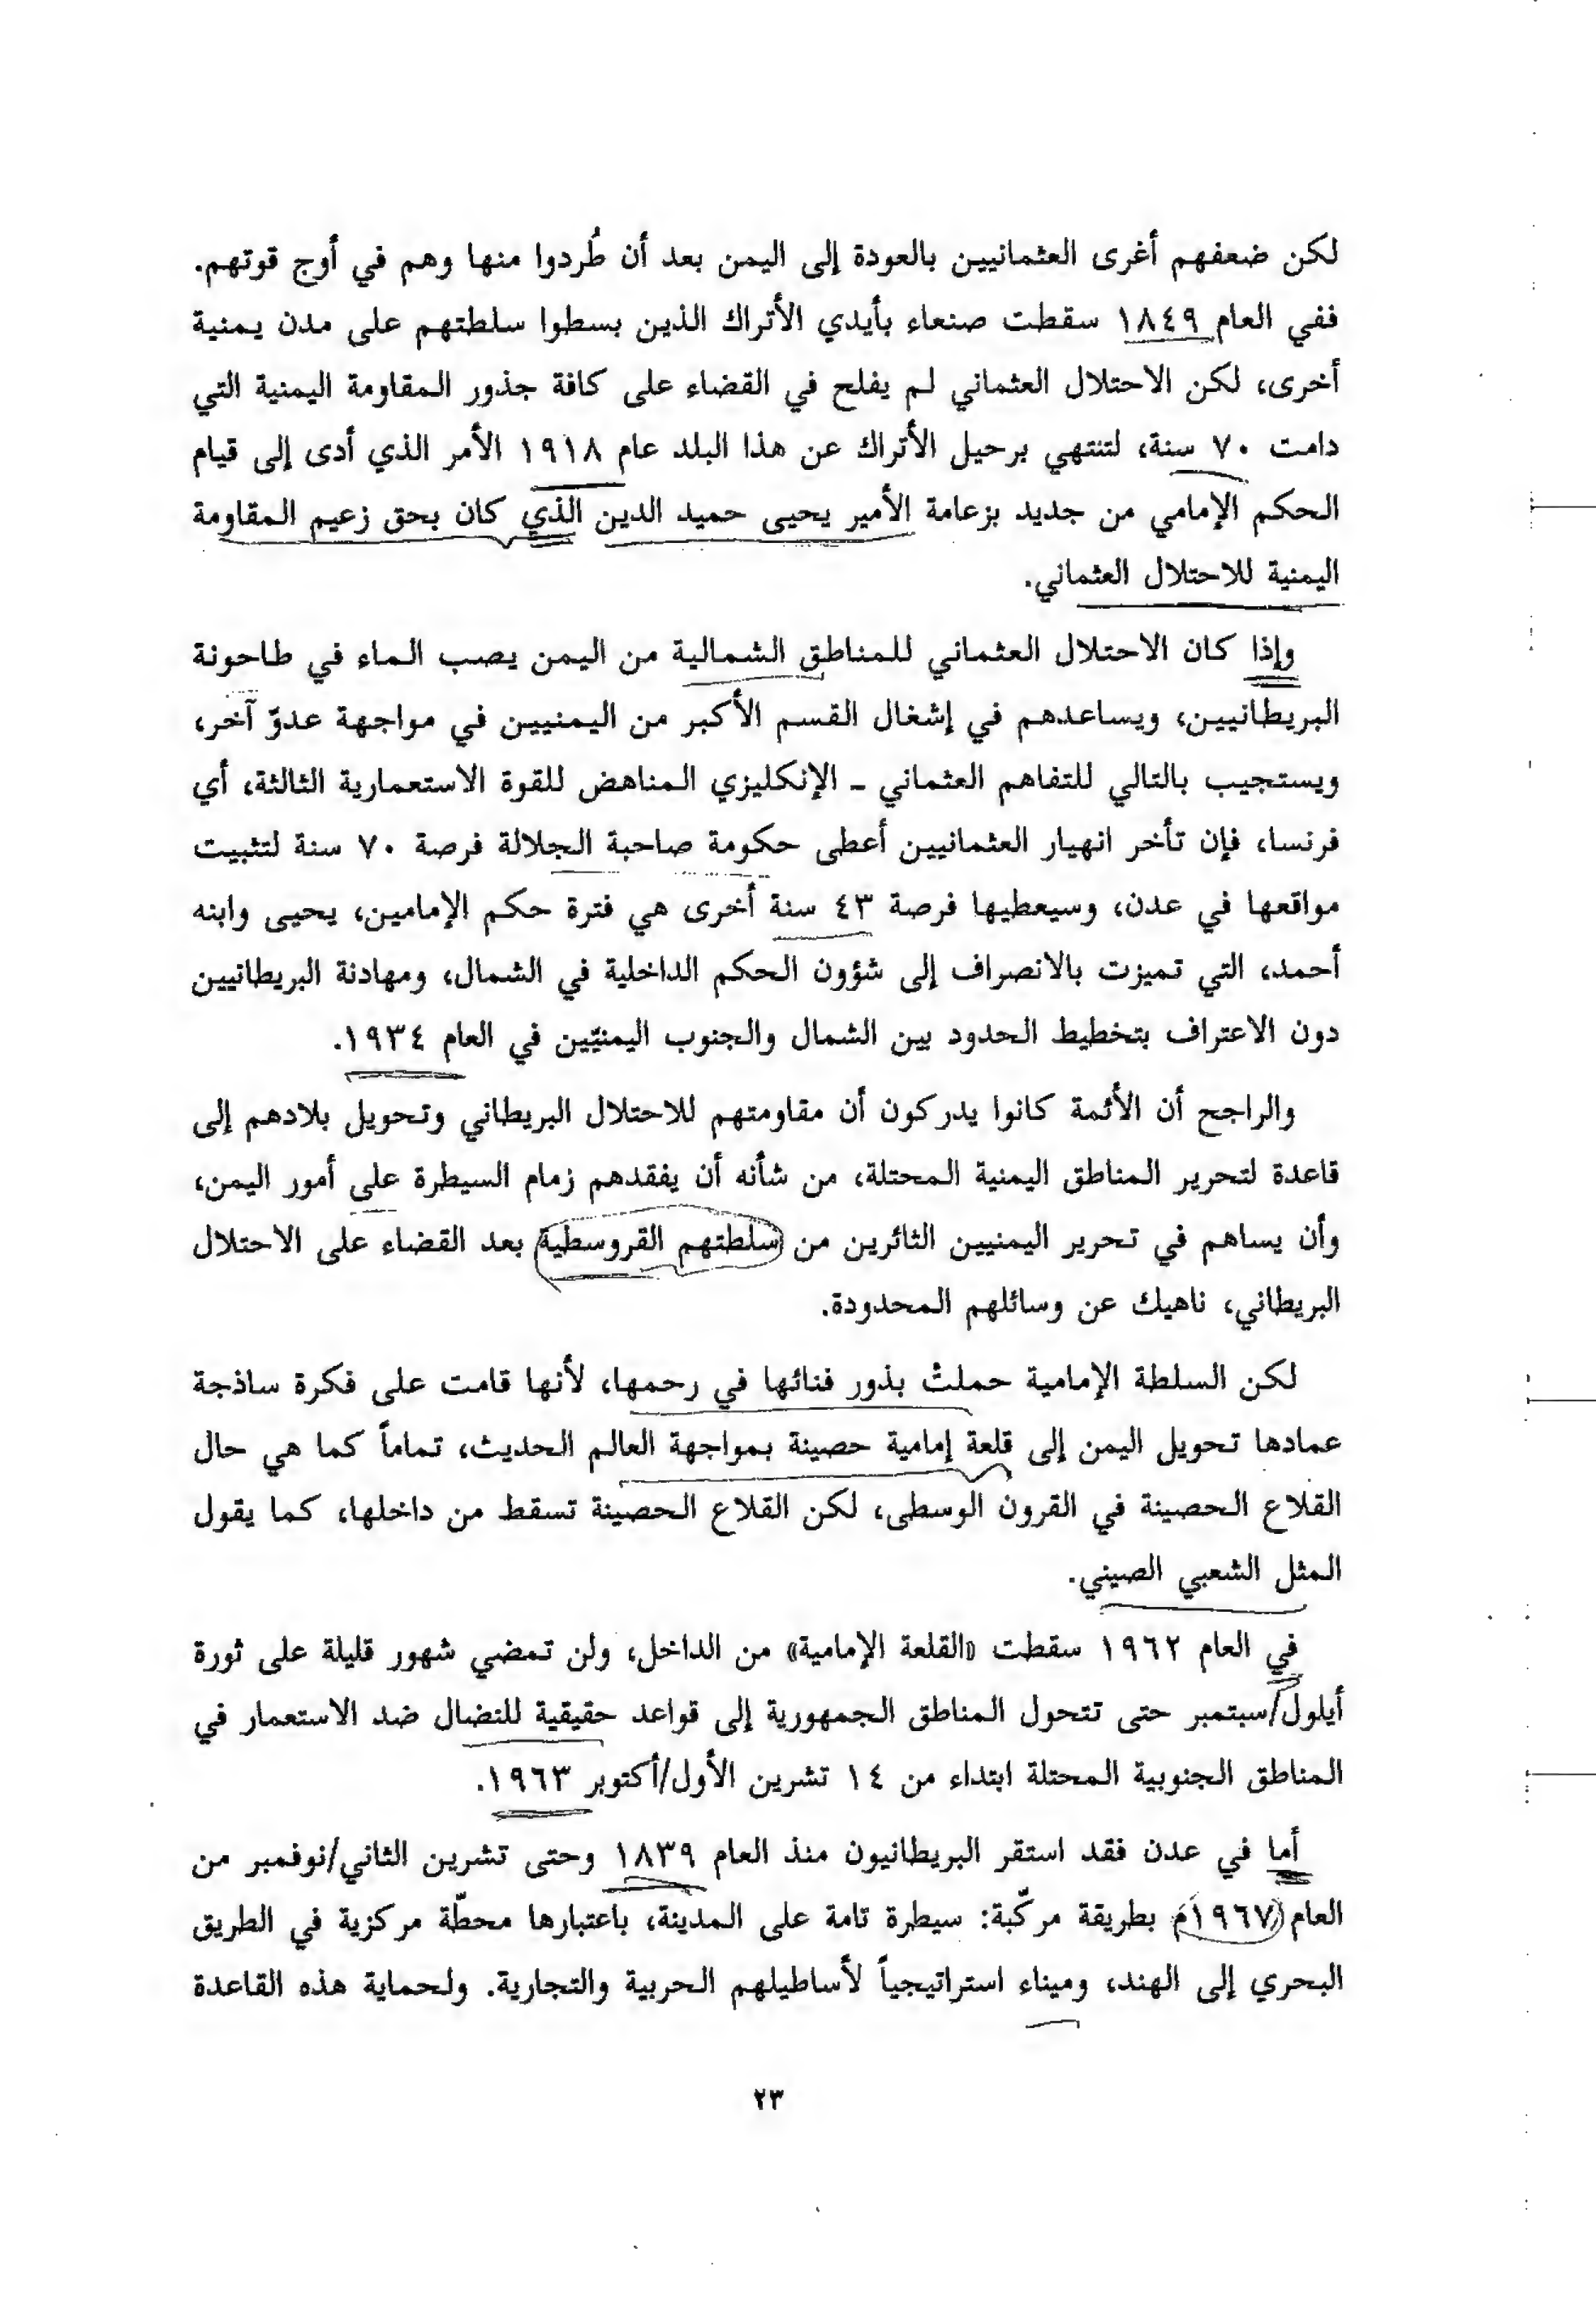 لكن ضعفهم أغرى العثمانيين بالعودة إلى اليمن بعد أن طُردوا منها وهم في أوج قوتهم.
ففي العام ١٨٤٩ سقطت صنعاء بأيدي الأتراك الذين بسطوا سلطتهم على مدن يمنية
أخرى، لكن الاحتلال العثماني لم يفلح في القضاء على كافة جذور المقاومة اليمنية التي
دامت ٧٠ سنة، لتنتهي برحيل الأتراك عن هذا البلد عام ١٩١٨ الأمر الذي أدى إلى قيام
الحكم الإمامي من جديد بزعامة الأمير يحيى حميد الدين الذي كان بحق زعيم المقاومة
اليمنية للاحتلال العثماني.
وإذا كان الاحتلال العثماني للمناطق الشمالية من اليمن يصب الماء في طاحونة
البريطانيين، ويساعدهم في إشغال القسم الأكبر من اليمنيين في مواجهة عدوّ آخر،
ويستجيب بالتالي للتفاهم العثماني ـ الإنكليزي المناهض للقوة الاستعمارية الثالثة، أي
فرنسا، فإن تأخر انهيار العثمانيين أعطى حكومة صاحبة الجلالة فرصة ٧٠ سنة لتثبيت
مواقعها في عدن، وسيعطيها فرصة ٤٣ سنة أخرى هي فترة حكم الإمامين، يحيى وابنه
أحمد، التي تميزت بالانصراف إلى شؤون الحكم الداخلية في الشمال، ومهادنة البريطانيين
دون الاعتراف بتخطيط الحدود بين الشمال والجنوب اليمنيّين في العام ١٩٣٤.
والراجح أن الأئمة كانوا يدركون أن مقاومتهم للاحتلال البريطاني وتحويل بلادهم إلى
قاعدة لتحرير المناطق اليمنية المحتلة، من شأنه أن يفقدهم زمام السيطرة على أمور اليمن،
وأن يساهم في تحرير اليمنيين الثائرين من سلطتهم القروسطية بعد القضاء على الاحتلال
البريطاني، ناهيك عن وسائلهم المحدودة.
لكن السلطة الإمامية حملتْ بذور فنائها في رحمها، لأنها قامت على فكرة ساذجة
عمادها تحويل اليمن إلى قلعة إمامية حصينة بمواجهة العالم الحديث، تماماً كما هي حال
القلاع الحصينة في القرون الوسطى، لكن القلاع الحصينة تسقط من داخلها، كما يقول
المثل الشعبي الصيني.
في العام ١٩٦٢ سقطت «القلعة الإمامية» من الداخل، ولن تمضي شهور قليلة على ثورة
أيلول/سبتمبر حتى تتحول المناطق الجمهورية إلى قواعد حقيقية للنضال ضد الاستعمار في
المناطق الجنوبية المحتلة ابتداء من ١٤ تشرين الأول/أكتوبر ١٩٦٣.
أما في عدن فقد استقر البريطانيون منذ العام ١٨٣٩ وحتى تشرين الثاني/نوفمبر من
العام ١٩٦٧م بطريقة مركّبة: سيطرة تامة على المدينة، باعتبارها محطّة مركزية في الطريق
البحري إلى الهند، وميناء استراتيجياً لأساطيلهم الحربية والتجارية. ولحماية هذه القاعدة
٢٣